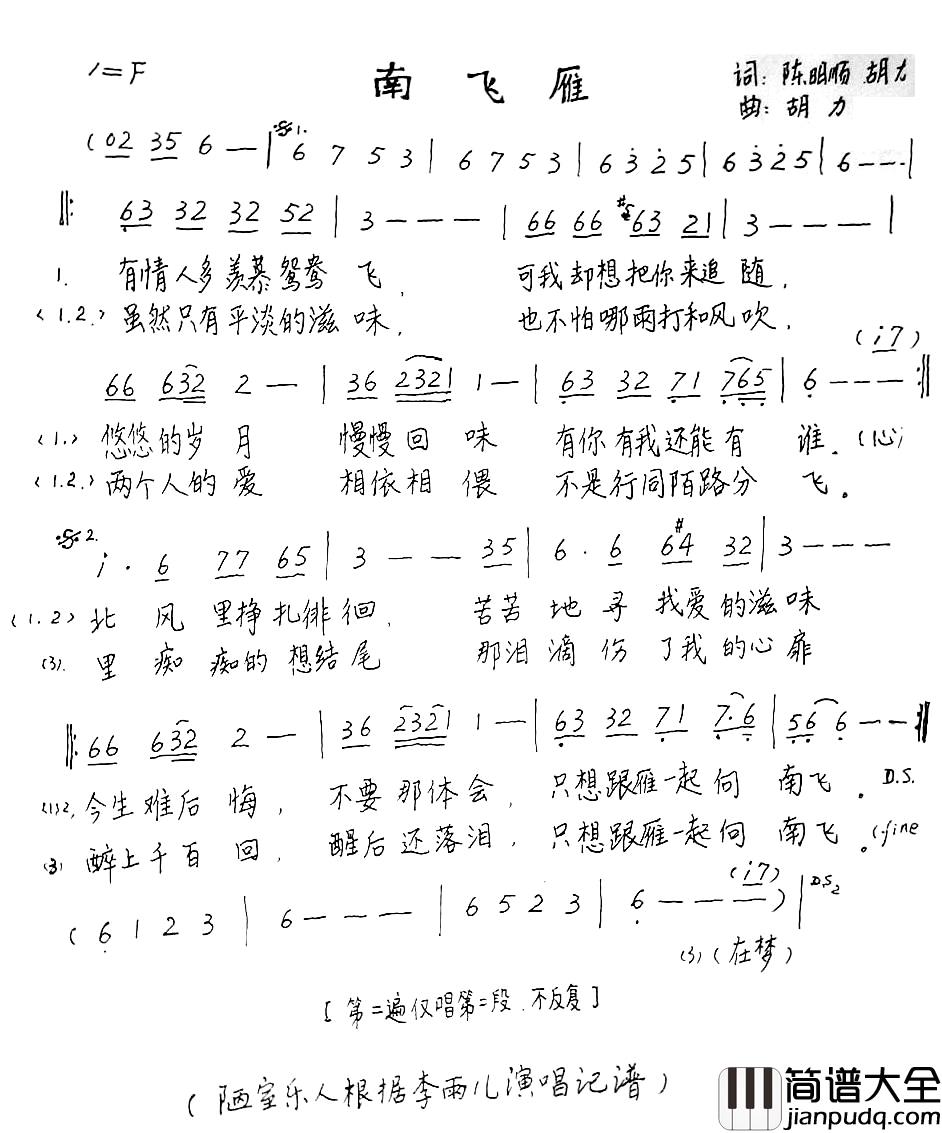 1=F
南 飞 雁
词: 陈明顺 胡力
曲: 胡 力
(02 35 6 — | 𝄋1. 6 7 5 3 | 6 7 5 3 | 6 3 2 5 | 6 3 2 5 | 6 - - - |
‖: 63 32 32 52 | 3 - - - | 66 66 #63 21 | 3 - - - |
1. 有情人多羡慕鸳鸯 飞, 可我却想把你来追 随,
(1.2.) 虽然只有平淡的滋 味, 也不怕哪雨打和风吹,
(i7)
66 632 2 — | 36 2321 1 — | 63 32 71 765 | 6 - - - :‖
(1.) 悠悠的岁 月 慢慢回 味 有你有我还能有 谁. (心)
(1.2.) 两个人的 爱 相依相 偎 不是行同陌路分 飞。
𝄋2.
i . 6 77 65 | 3 — — 35 | 6 . 6 6#4 32 | 3 — — —
(1.2) 北 风 里挣扎徘 徊, 苦苦 地 寻 我爱的滋味
(3). 里 痴 痴的 想结尾 那泪 滴 伤 了我 的心 扉
‖: 66 632 2 — | 36 2321 1 — | 63 32 71 7.6 | 56 6 — — :‖
(1)2, 今生 难后 悔, 不要 那体会, 只想跟雁一起向 南飞. D.S.
(3) 醉上千百 回, 醒后还落泪, 只想跟雁一起向 南飞。 (fine
(i7)
( 6 1 2 3 | 6 - - - | 6 5 2 3 | 6 — — — ) | D.S2
(3) (在梦)
[ 第二遍仅唱第二段. 不反复 ]
( 陋室乐人根据李雨儿演唱记谱 )
简谱大全
jianpudq.com